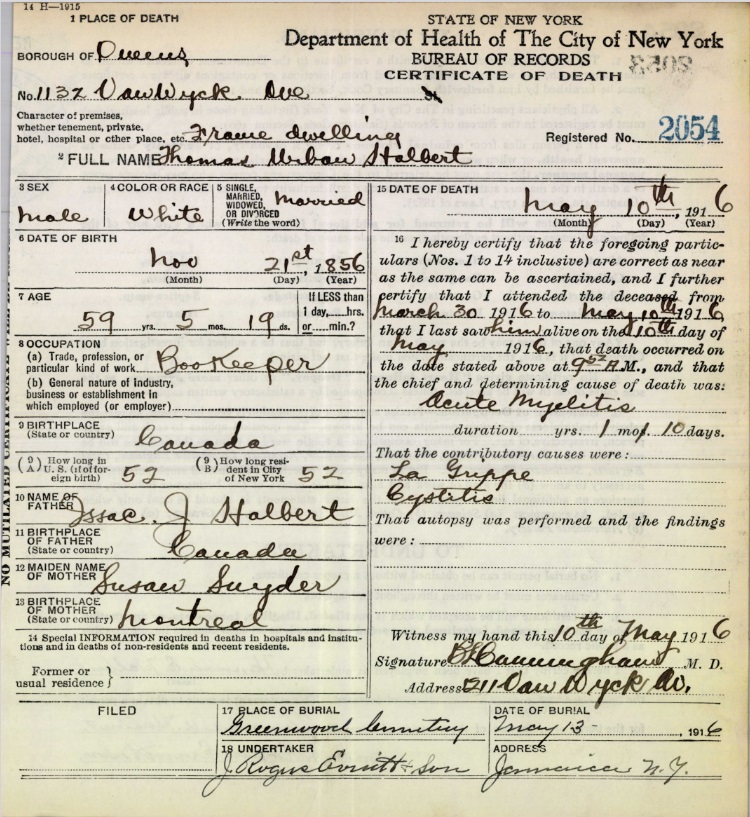 14 H—1915
1 PLACE OF DEATH
STATE OF NEW YORK
Department of Health of The City of New York
BUREAU OF RECORDS
CERTIFICATE OF DEATH
BOROUGH OF Queens
No. 1132 Van Wyck Ave St
Character of premises,
whether tenement, private,
hotel, hospital or other place, etc. Frame dwelling
Registered No. 2054
2 FULL NAME Thomas Urban Halbert
3 SEX
male
4 COLOR OR RACE
White
5 SINGLE,
MARRIED,
WIDOWED,
OR DIVORCED
(Write the word)
Married
6 DATE OF BIRTH
Nov 21st, 1856
(Month) (Day) (Year)
7 AGE
59 yrs. 5 mos. 19 ds.
If LESS than
1 day,....hrs.
or.....min.?
8 OCCUPATION
(a) Trade, profession, or
particular kind of work Bookeeper
(b) General nature of industry,
business or establishment in
which employed (or employer)
9 BIRTHPLACE
(State or country) Canada
(9 A) How long in
U. S. (if of for-
eign birth) 52
(9 B) How long resi-
dent in City
of New York 52
10 NAME OF
FATHER Issac J Halbert
11 BIRTHPLACE
OF FATHER
(State or country) Canada
12 MAIDEN NAME
OF MOTHER Susan Snyder
13 BIRTHPLACE
OF MOTHER
(State or country) Montreal
14 Special INFORMATION required in deaths in hospitals and institu-
tions and in deaths of non-residents and recent residents.
Former or
usual residence
15 DATE OF DEATH
May 10th, 1916
(Month) (Day) (Year)
16 I hereby certify that the foregoing partic-
ulars (Nos. 1 to 14 inclusive) are correct as near
as the same can be ascertained, and I further
certify that I attended the deceased from
March 30 1916 to May 10th 1916
that I last saw him alive on the 10th day of
May 1916, that death occurred on
the date stated above at 9 52 A.M., and that
the chief and determining cause of death was:
Acute Myelitis
duration yrs. 1 mos. 10 days.
That the contributory causes were:
La Grippe
Cystitis
That autopsy was performed and the findings
were:
Witness my hand this 10th day of May 1916
Signature Cunningham M. D.
Address 211 Van Wyck Av.
NO MUTILATED CERTIFICATE WILL BE
FILED
17 PLACE OF BURIAL
Greenwood Cemetery
DATE OF BURIAL
May 13 - 1916
18 UNDERTAKER
J Rogus & Son
ADDRESS
Jamaica N.Y.